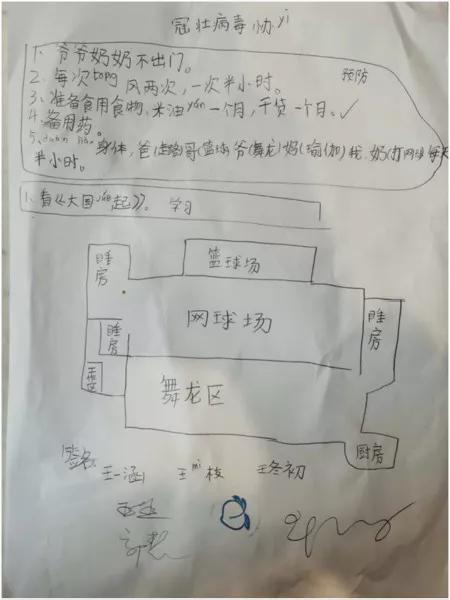 冠壮病毒协yi
1、爷爷奶奶不出门。
2、每次tong风两次,一次半小时。
预防
3、准备食用食物、米油yán一个月,干货一个月。✓
4、备用药。
5、duàn liàn身体,爸(走路)哥(篮球)爷(舞龙)妈(瑜伽)我、奶(打网球)每天
半小时。
1、看《大国jué起》。 学习
睡房
篮球场
网球场
睡房
睡房
舞龙区
厨房
签名
王一涵
王mi枝
王冬初